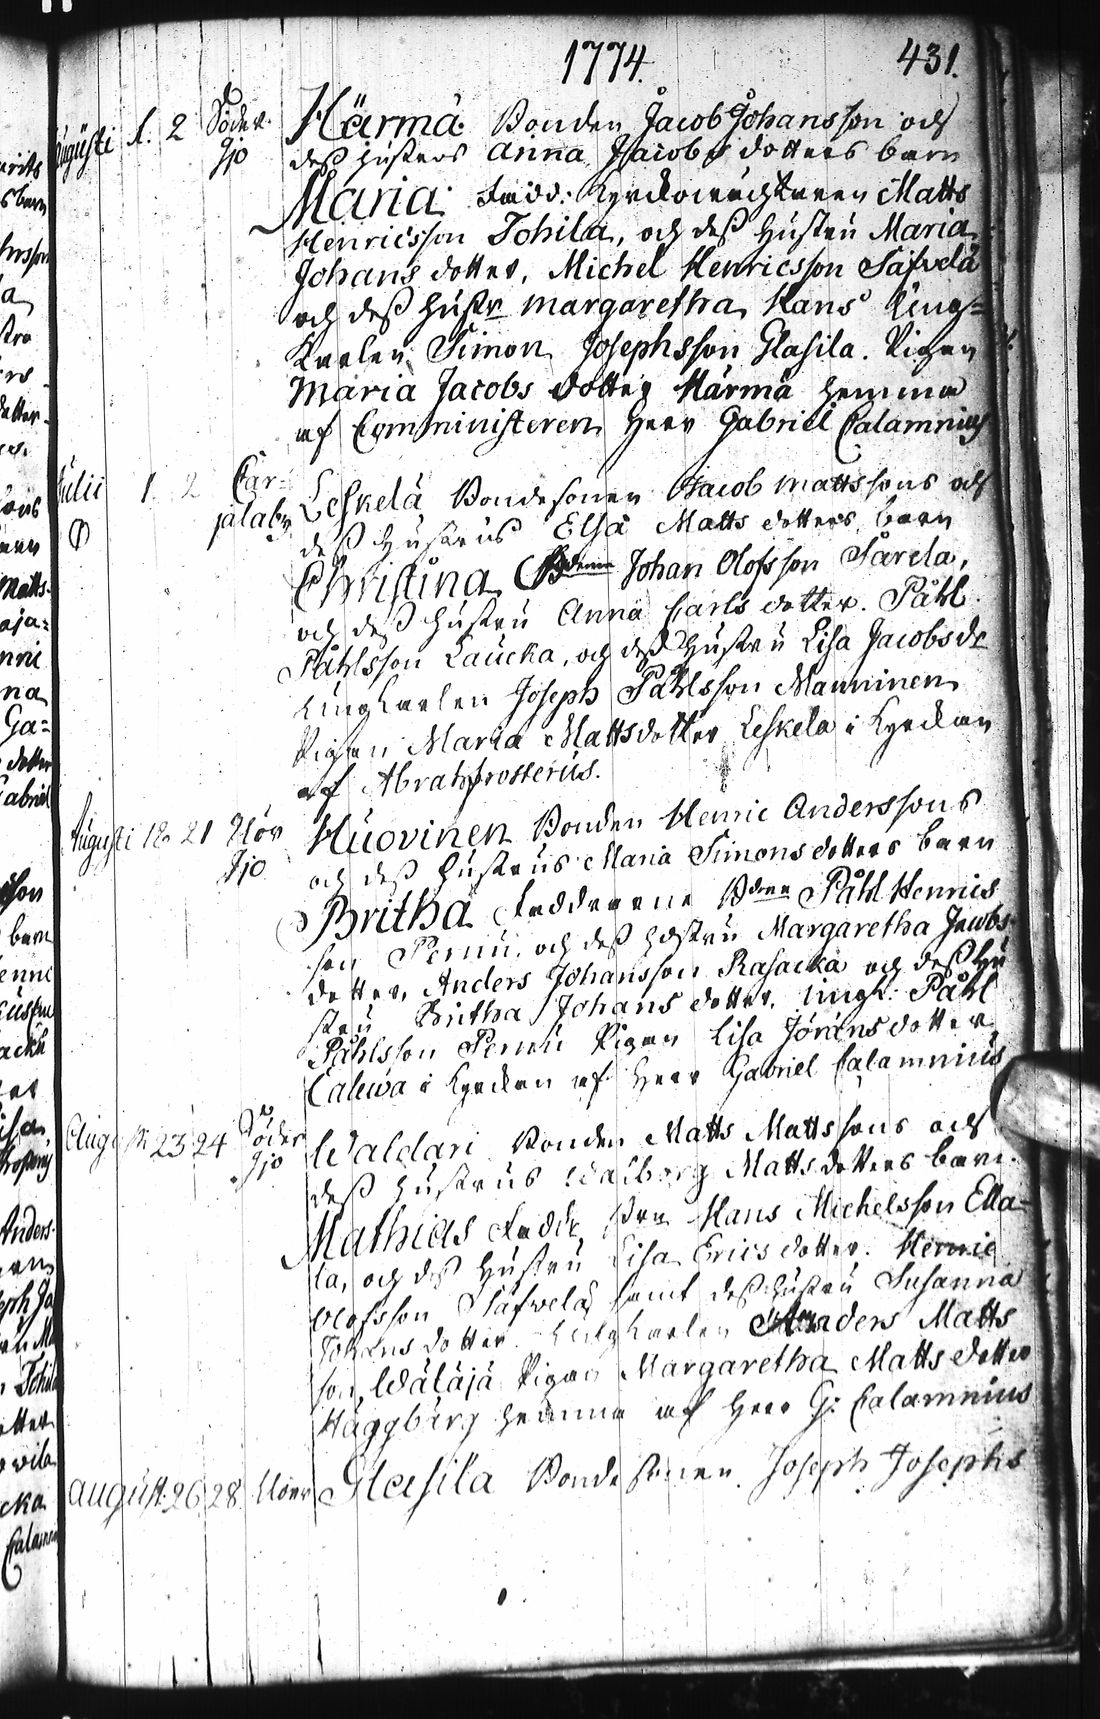 1774. 431.
Augusti 1. 2 Söder Sjö Härmä Bonden Jacob Johansson och
dess Hustrus Anna Jacobs dotters barn
Maria. Fadd: Kyrkowäcktaren Matts
Henricsson Tohila, och dess Hustru Maria
Johans dotter, Michel Henricsson Säfvelä
och dess Hustr Margaretha Hans Ung=
Karlen Simon Josephsson Glasila. Pigan
Maria Jacobs dotter Härmä hemma
af Comministeren Herr Gabriel Calamnius
Julii 1. 2 Car= jalaby Leskelä Bondesonen Jacob Mattssons och
dess Hustrus Elsa Matts dotters barn
Christina Bdenne Johan Olofsson Särela,
och dess Hustru Anna Carls dotter. Påhl
Påhlsson Laucka, och dess Hustru Lisa Jacobsdr
Ungkarlen Joseph Påhlsson Manninen
Pigan Maria Mattsdotter Leskela i Kyrckan
af Abrah frosterus.
Augusti 18 21 Nör Sjö Huovinen Bonden Henric Anderssons
och dess Hustrus Maria Simons dotters barn
Britha Faddrarne Bdenn Påhl Henrics
son Pernu, och dess Hustru Margaretha Jacobs
dotter, Anders Johansson Rasacka och dess Hu
stru Britha Johans dotter. Ungk: Påhl
Påhlsson Pernu Pigan Lisa Jöransdotter
Calewa i Kyrckan af Herr Gabriel Calamnius
August 23 24 Söder Sjö Waldari Bonden Matts Mattssons och
dess Hustrus Walborg Matts dotters barn.
Mathias Fadd Hans Michelsson Ella=
la, och des Hustru Lisa Erics dotter. Henric
Olofsson Säfvelä samt dess Hustru Susanna
Johans dotter Ungkarlen Anders Matts
son, Wäläjä Pigan Margaretha Matts dotter
Häggberg hemma af Herr G: Calamnius
August. 26 28 Glasila Bonde sonen Joseph Josephs